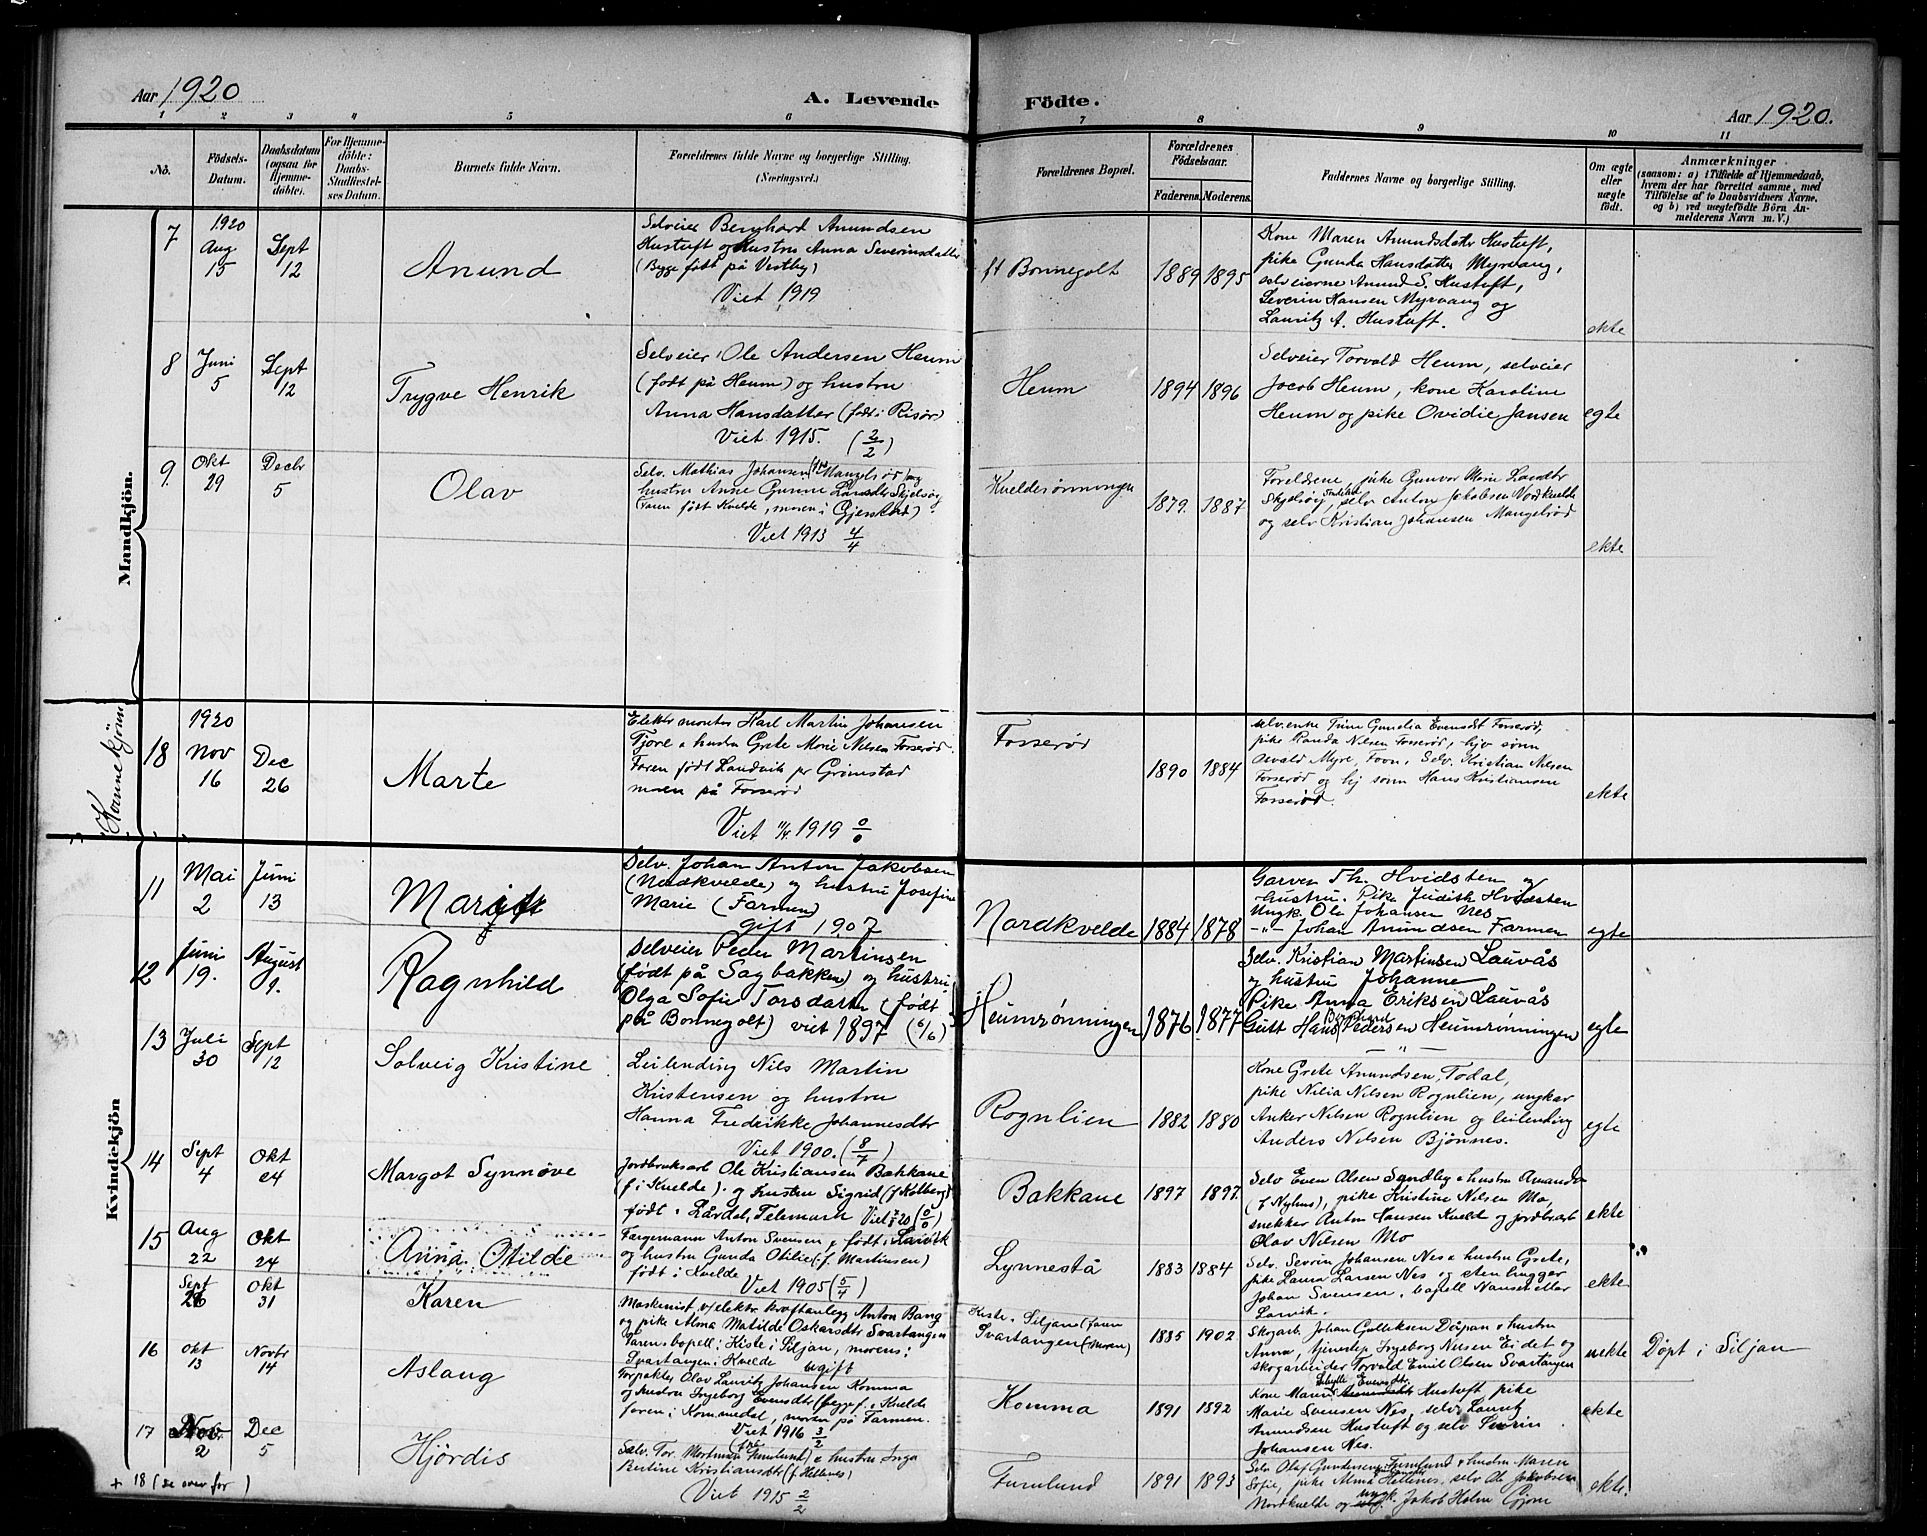 Aar 1920
A. Levende Födte.
Aar 1920.
1 2 3 4 5 6 7 8 9 10 11
No.
Födsels-Datum.
Daabsdatum (ogsaa for Hjemmedöbte).
For Hjemmedöbte: Daabs-Stadfæstelses Datum.
Barnets fulde Navn.
Forældrenes fulde Navne og borgerlige Stilling.
(Næringsvei.)
Forældrenes Bopæl.
Forældrenes Födselsaar.
Faderens.
Moderens.
Faddernes Navne og borgerlige Stilling.
Om ægte eller uægte födt.
Anmærkninger
(saasom: a) i Tilfælde af Hjemmedaab,
hvem der har forrettet samme, med
Tilföielse af to Daabsvidners Navne.
og b) ved uægtefödte Börn An-
melderens Navn m. V.)
Mandkjön.
7
1920
Aug
15
Sept
12
Anund
Selveier Bernhard Amundsen
Hustuft og hustru Anna Severinsdatter
(Bygge født på Vestby)
Viet 1919
Bonnegolt
1889
1895
Kone Maren Amundsdatter Hustuft,
pike Gunda Hansdatter Myrvang,
selveierne Anund S. Hustuft,
Severin Hansen Myrvang og
Lauritz A. Hustuft.
ekte
8
Juni
5
Sept
12
Trygve Henrik
Selveier Ole Andersen Heum
(født på Heum) og hustru
Anna Hansdatter (født i Risør)
Viet 1915. (3/2)
Heum
1894
1896
Selveier Torvald Heum, selveier
Jacob Heum, kone Karoline
Heum og pike Ovidie Jansen
egte
9.
Okt
29
Decbr
5
Olav
Selv. Mathias Johansen Mangelsrød og
hustru Anne Gurine Larsdtr Skjelsøy
(Faren født Kvelde, moren i Gjerstad)
Viet 1913 4/4
Kvelderønningen
1879.
1887
Foreldrene, pike Gunvor Marie Larsdtr
Skjelsøy, selv Anton Jakobsen Nordkvelde
og selv Kristian Johansen Mangelsrød
ekte
Kvinnekjønn
18
1920
Nov
16
Dec
26
Marte
Elektr montør Karl Martin Johansen
Tjore o hustru Grete Marie Nilsen Forserød.
Faren født Landvik pr Grimstad
moren på Forserød
Viet 11/4 1919 0/0
Forserød
1890
1884
selv.enke Trine Gunelia Evensdt Forserød,
pike Randa Nilsen Forserød, hjv sønn
Osvald Myre, Foon, Selv. Kristian Nilsen
Forserød og hj sønn Hans Kristiansen
Forserød.
ekte
Kvindekjön
11
Mai
2
Juni
13
Marit
Selv. Johan Anton Jakobsen
(Nordkvelde) og hustru Josefine
Marie (Farmen)
Gift 1907
Nordkvelde
1884
1878
Garver Th. Hvidsten og
hustru. Pike Judith Hvidsten
Ungk. Ole Johansen Nes
-"- Johan Anundsen Farmen
egte
12
Juni
19.
August
9.
Ragnhild
Selveier Peder Martinsen
(født på Sagbakken) og hustru
Olga Sofie Torsdatter (født
på Bonnegolt) viet 1897 (6/6)
Heumrønningen
1876
1877
Selv. Kristian Martinsen Lauvås
og hustru Johanne -"-
Pike Anna Eriksen Lauvås
Gutt Hans Bernhard Pedersen Heumrønningen
egte
13
Juli
30
Sept
12
Solveig Kristine
Leilending Nils Martin
Kristensen og hustru
Hanna Fredrikke Johannesdtr
Viet 1900. (8/7)
Rognlien
1882
1880
Kone Grete Anundsen, Todal,
pike Nilia Nilsen Rognlien, ungkar
Anker Nilsen Rognlien og leilending
Anders Nilsen Bjønnes.
egte
14
Sept
4
Okt
24
Margot Synnøve
Jordbruksarb Ole Kristiansen Bakkane
f i Kvelde). og hustru Sigrid (f Kolberg)
født i Lårdal, Telemark Viet 20 (0/0)
Bakkane
1897
1897.
Selv Even Olsen Sundby o hustru Amanda
(f Nyhus), pike Kristine Nilsen Mo,
snekker Anton Hansen Kvelde og jordbr.arb
Olav Nilsen Mo
ekte
15
Aug
22
Okt
24
Anna Otilde
Færgemann Anton Svensen, født i Larvik
og hustru Gunda Otilie (f. Martinsen)
født i Kvelde
Viet 1905 (5/4)
Lynnestå
1883
1884
Selv. Sevrin Johansen Nes o hustru Grete,
pike Laura Larsen Nes og stenhugger
Johan Svensen, bopell Nanset eller
Larvik.
ekte
Sept
26
Okt
31
Karen
Maskinist v/elektr kraftanlegg Anton Bang
og pike Alma Matilde Oskarsdtr Svartangen
Farens bopell: Kiste i Siljan, morens:
Svartangen i Kvelde ugift
Kiste i Siljan (faren
Svartangen (Moren)
1885
1902
Skogarb. Johan Gulliksen Dåpan o hustru
Anna, tjenestep Ingeborg Nilsen Eidet og
skogarbeider Torvald Emil Olsen Svartangen
uekte
Döpt i Siljan
16
Okt
13
Novbr
14
Aslaug
Forpakter Olav Lauritz Johansen Komma
og hustru Ingeborg Evensdtr (begge f. i Kvelde
faren i Kommedal, moren på Farmen.
Viet 1916 3/2
Komma
1891
1892
Kone Maren Sibylle Evensdtr. Hustuft pike
Marie Svensen Nes, selv. Lauritz
Amundsen Hustuft og selv Sevrin
Johansen Nes.
ekte
17
Nov
2
Dec
5
Hjördis
Selv. Tor. Mortensen Furulund) o hustru Inga
Bertine Kristiansdtr (f Hellenes)
Viet 1915 2/2
Furulund
1891
1893
Selv Olaf Gundersen Furulund o hustru Maren
Sofie, pike Alma Hellenes, selv Ole Jakobsen
Nordkvelde og ungk. Jakob Holm Gjone
ekte.
+ 18 (se over for)